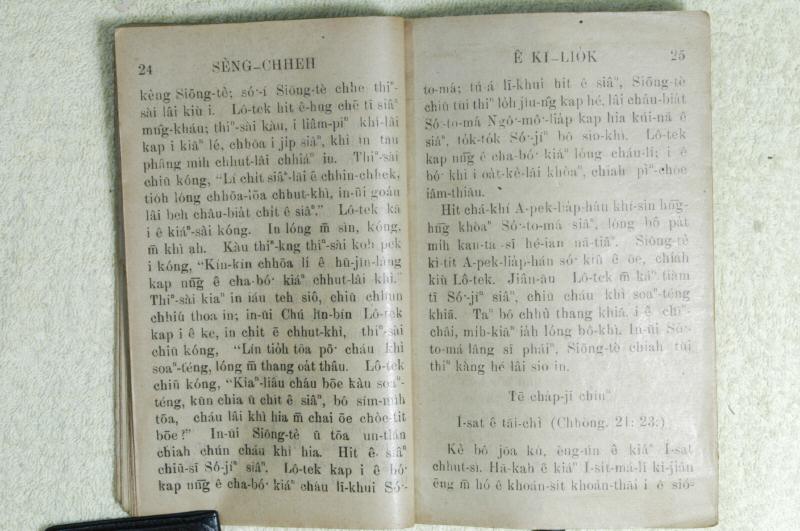 24 SÈNG-CHHEH
kèng Siōng-tè; só͘-í Siōng-tè chhe thiⁿ-
sài lâi kiù i. Lô-tek hit ê-hng chē tī siâⁿ
mn̂g-kháu; thiⁿ-sài kàu, i liâm-piⁿ khí-lâi
kap i kiâⁿ lé, chhōa i ji̍p siâⁿ, khì in tau
pháng mi̍h chhut-lâi chhiáⁿ in. Thiⁿ-sài
chiū kóng, “Lí chit siâⁿ-lāi ê chhin-chhek,
tio̍h lóng chhōa-iōa chhut-khì, in-ūi goán
lâi beh chāu-bia̍t chit ê siâⁿ.” Lô-tek kā
i ê kiáⁿ-sài kóng. In lóng m̄ sìn, kóng,
m̄ khì ah. Kàu thiⁿ-kng thiⁿ-sài koh pek
i kóng, “Kín-kín chhōa lí ê hū-jîn-lâng
kap nn̄g ê cha-bó͘ kiáⁿ chhut-lâi khì.”
Thiⁿ-sài kiaⁿ in iáu teh siô, chiū chhun
chhiú thoa in; in-ūi Chú lîn-bín Lô-tek
kap i ê ke, in chit ē chhut-khì, thiⁿ-sài
chiū kóng, “Lín tio̍h tōa pō͘ cháu khì
soaⁿ-téng, lóng m̄ thang oa̍t thâu. Lô-tek
chiū kóng, “Kiaⁿ-liâu cháu bōe kàu soaⁿ-
téng, kūn chia ū chit ê siâⁿ, bô sím-mi̍h
tōa, cháu lâi khì hia m̄ chai ōe chòe-tit
bōe?” In-ūi Siōng-tè ū tōa un-tián
chiah chún cháu khì hia. Hit ê siâⁿ
chiū-sī Só-jíⁿ siâⁿ. Lô-tek kap i ê bó͘
kap nn̄g ê cha-bó͘ kiáⁿ cháu lī-khui Só͘-
Ê KÌ-LIO̍K 25
to-má; tú-á lī-khui hit ê siâⁿ, Siōng-tè
chiū tùi thiⁿ lo̍h jíu-n̂g kap hé, lâi chāu-bia̍t
Só͘-to-má Ngô͘-mô͘-lia̍p kap hia kúi-nā ê
siâⁿ, to̍k-to̍k Só-jíⁿ bô sio-khì. Lô-tek
kap nn̄g ê cha-bó͘ kiáⁿ lóng cháu-lī; i ê
bó͘ khì i oa̍t-kè-lâi khòaⁿ, chiah pìⁿ-chòe
iâm-thiāu.
Hit chá-khí A-pek-lia̍p-hán khí-sin hn̄g-
hn̄g khòaⁿ Só͘-to-má siâⁿ, lóng bô pa̍t
mi̍h kan-ta sī hé-ian nā-tiāⁿ. Siōng-tè
kì-tit A-pek-lia̍p-hán só͘ kiû ê ōe, chiah
kiù Lô-tek. Jiân-āu Lô-tek m̄ káⁿ tiàm
tī Só-jíⁿ siâⁿ, chiū cháu khì soaⁿ-téng
khiā. Taⁿ bô chhù thang khiā, i ê chîⁿ-
châi, mi̍h-kiāⁿ ia̍h lóng bô-khì. In-ūi Só͘-
to-má lâng sī pháiⁿ, Siōng-tè chiah tùi
thiⁿ kàng hé lâi sio in.
Tē cha̍p-jī chiuⁿ
I-sat ê tāi-chì (Chhòng. 21: 23.)
Kè bô jōa kú, èng-ún ê kiáⁿ I-sat
chhut-sì. Hā-kah ê kiáⁿ I-si̍t-má-lī kí-jiân
ēng m̄ hó ê khoán-sit khoán-thāi i ê sió-